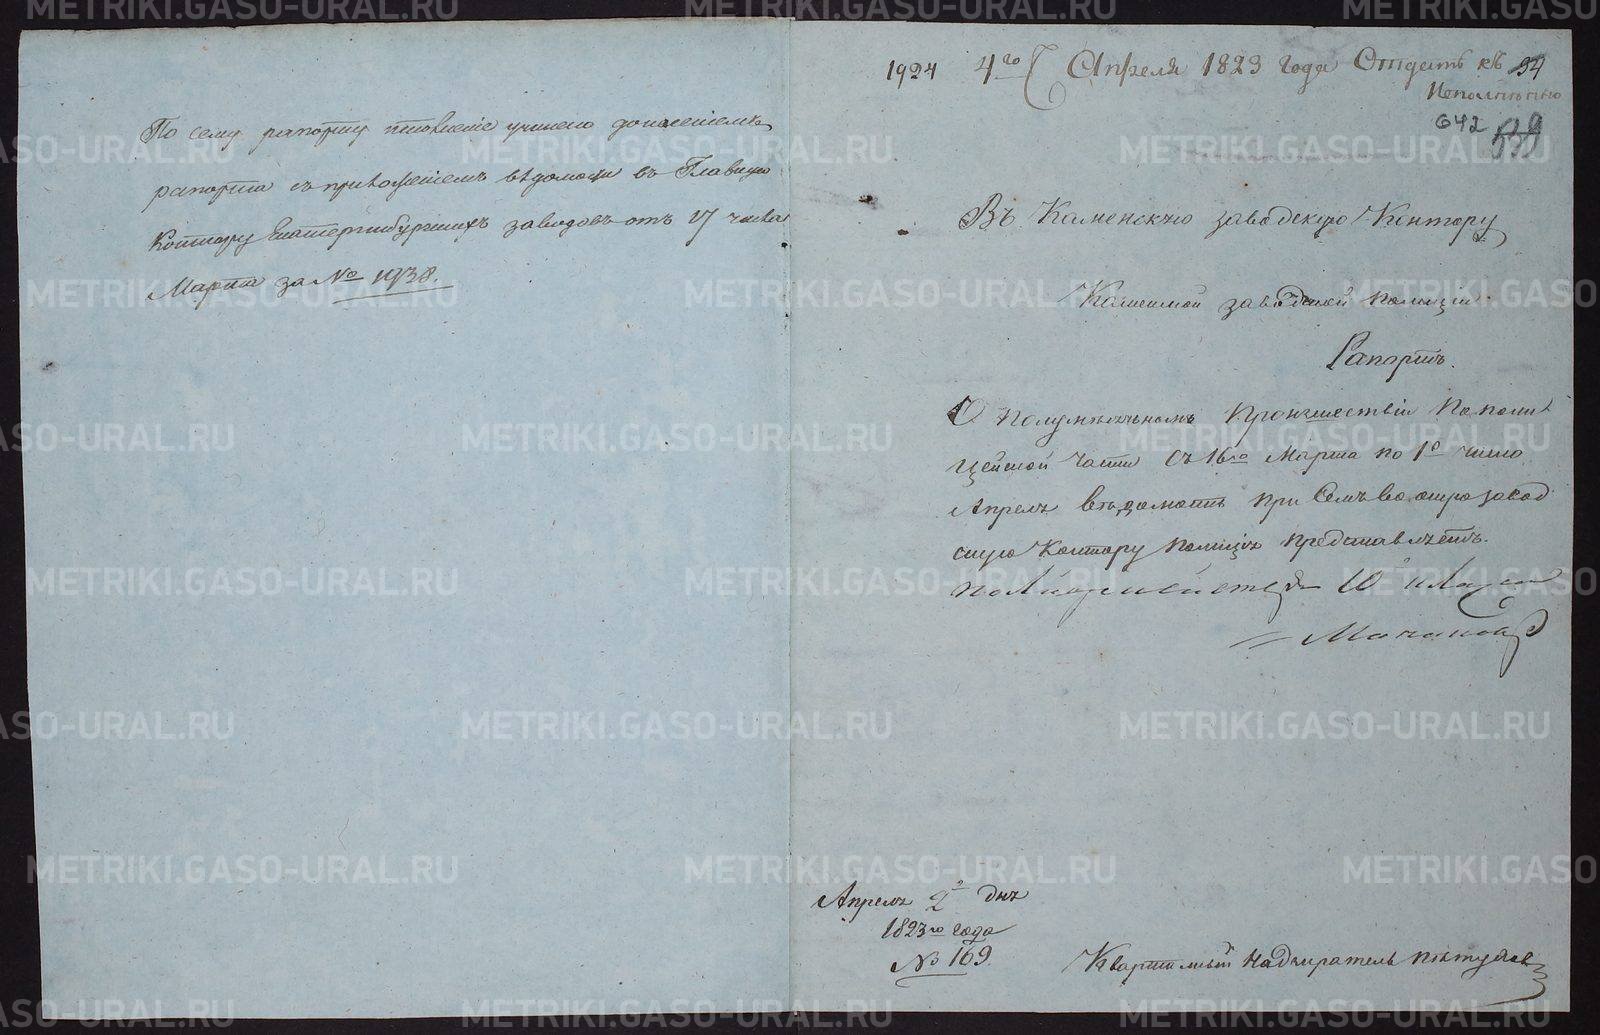 По сему рапорту исполнение учинено донесениемъ
рапорта съ приложениемъ ведомости въ Главную
Контору Екатеринбургскихъ заводовъ отъ 17 числа
Марта за № 1938.
1924 4го Апреля 1823 года Отдать къ 94
Исполнению
642 539
Въ Каменскую заводскую Контору
Каменской заводской полиціи
Рапортъ.
О полумесячномъ Произшествіи По поли
цейской части Съ 16го Марта по 1е число
Апреля ведомость при Семъ во оную завод
скую Контору полиція представляетъ.
Полицмейстеръ
Апреля 2 дня
1823го года
№ 169
Квартальный Надзиратель
METRIKI.GASO-URAL.RU